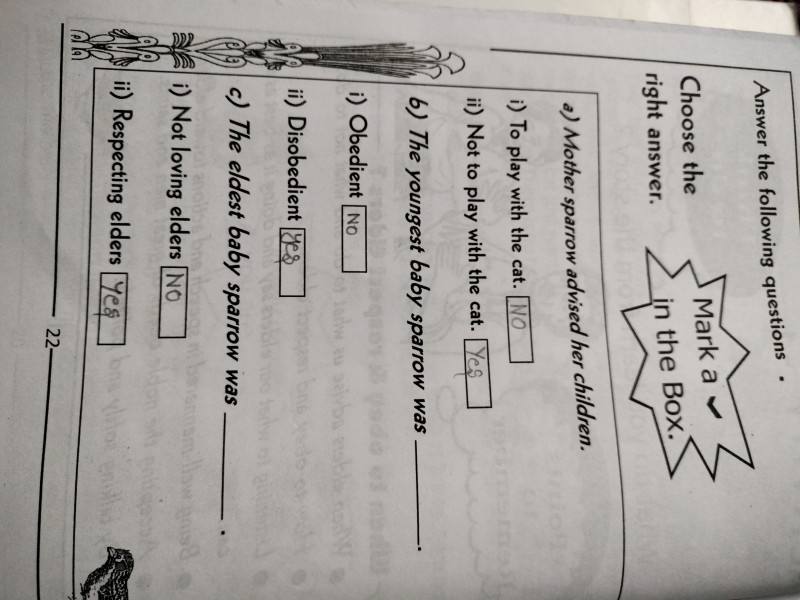 Answer the following questions .
Choose the
right answer.
Mark a ✔
in the Box.
a) Mother sparrow advised her children.
i) To play with the cat. NO
ii) Not to play with the cat. Yes
b) The youngest baby sparrow was ______.
i) Obedient NO
ii) Disobedient Yes
c) The eldest baby sparrow was ______ .
i) Not loving elders NO
ii) Respecting elders Yes
22